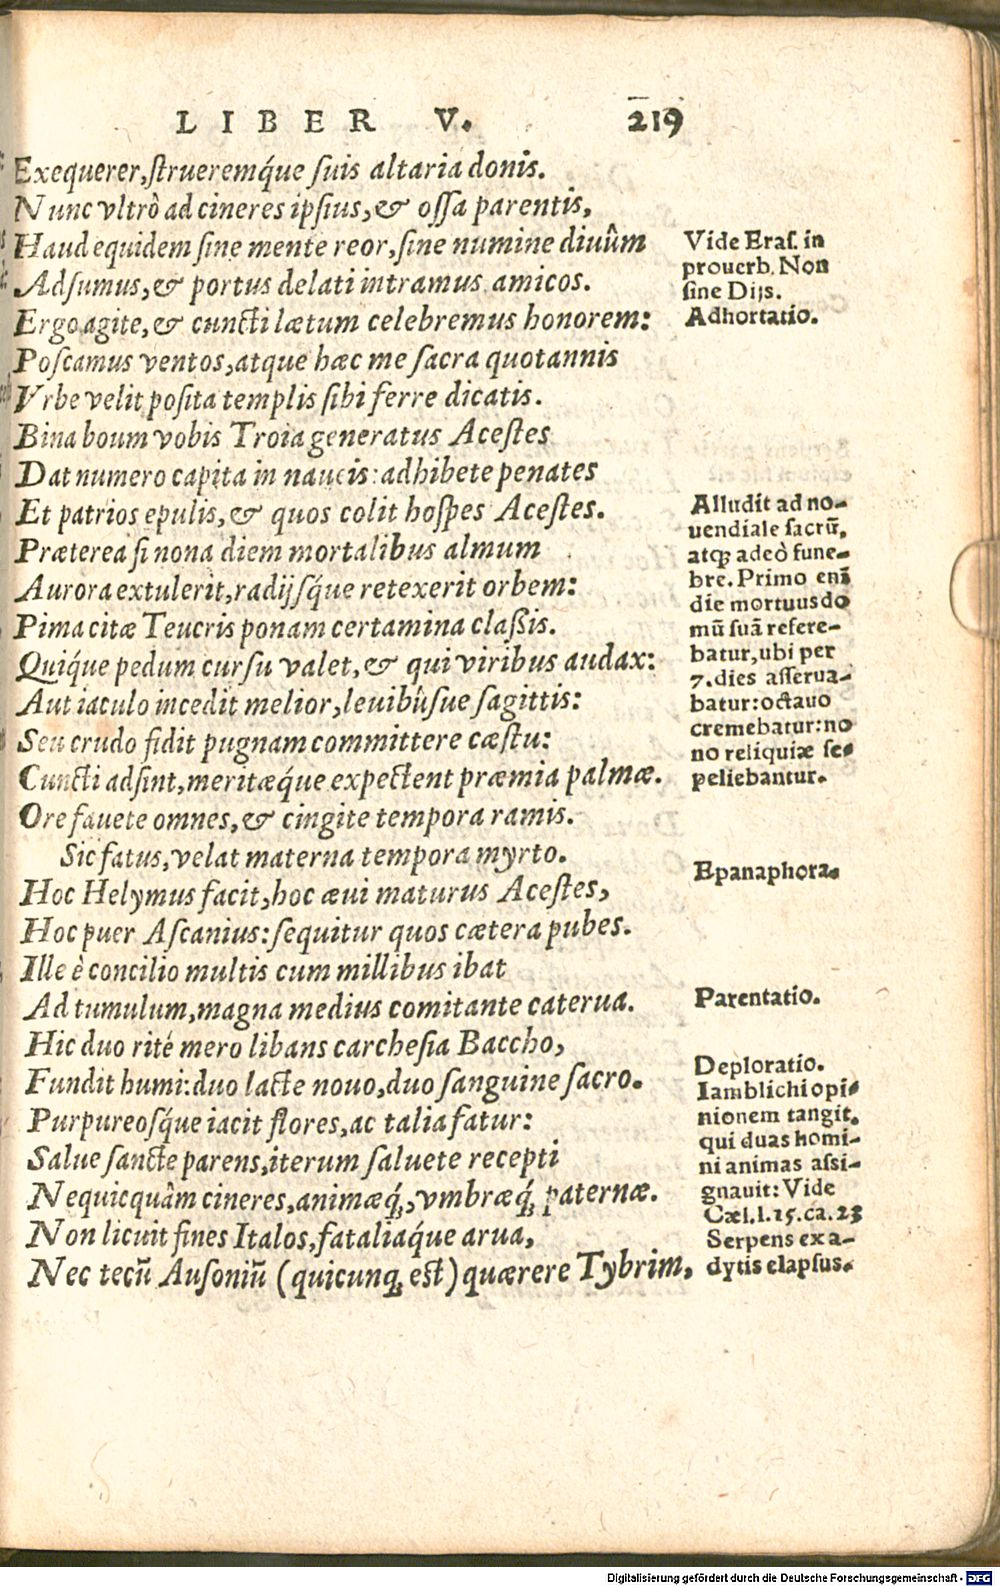 LIBER V. 219
Exequerer, ſtrueremq́ue ſuis altaria donis.
Nunc vltrò ad cineres ipſius, & oſſa parentis,
Haud equidem ſine mente reor, ſine numine diuûm
Adſumus, & portus delati intramus amicos.
Ergo agite, & cuncti lætum celebremus honorem:
Poſcamus ventos, atque hæc me ſacra quotannis
Vrbe velit poſita templis ſibi ferre dicatis.
Bina boum vobis Troia generatus Aceſtes
Dat numero capita in naueis: adhibete penates
Et patrios epulis, & quos colit hoſpes Aceſtes.
Præterea ſi nona diem mortalibus almum
Aurora extulerit, radijſq́ue retexerit orbem:
Pima citæ Teucris ponam certamina claßis.
Quiq́ue pedum curſu valet, & qui viribus audax:
Aut iaculo incedit melior, leuibûſue ſagittis:
Seu crudo fidit pugnam committere cæſtu:
Cuncti adſint, meritæq́ue expectent præmia palmæ.
Ore fauete omnes, & cingite tempora ramis.
Sic fatus, velat materna tempora myrto.
Hoc Helymus facit, hoc æui maturus Aceſtes,
Hoc puer Aſcanius: ſequitur quos cætera pubes.
Ille è concilio multis cum millibus ibat
Ad tumulum, magna medius comitante caterua.
Hic duo rité mero libans carcheſia Baccho,
Fundit humi: duo lacte nouo, duo ſanguine ſacro.
Purpureoſq́ue iacit flores, ac talia fatur:
Salue ſancte parens, iterum ſaluete recepti
Nequicquàm cineres, animæq́;, vmbræq́; paternæ.
Non licuit fines Italos, fataliaq́ue arua,
Nec tecũ Auſoniũ (quicunq; eſt) quærere Tybrim,
Vide Eraſ. in
prouerb. Non
ſine Dijs.
Adhortatio.
Alludit ad no-
uendiale ſacrũ,
atq; adeò fune-
bre. Primo enĩ
die mortuus do
mũ ſuã refere-
batur, ubi per
7. dies aſſerua-
batur: octauo
cremebatur: no
no reliquiæ ſe-
peliebantur.
Epanaphora.
Parentatio.
Deploratio.
Iamblichi opi-
nionem tangit,
qui duas homi-
ni animas aſſi-
gnauit: Vide
Cæl. l. 15. ca. 23
Serpens ex a-
dytis elapſus.
Digitalisierung gefördert durch die Deutsche Forschungsgemeinschaft - DFG